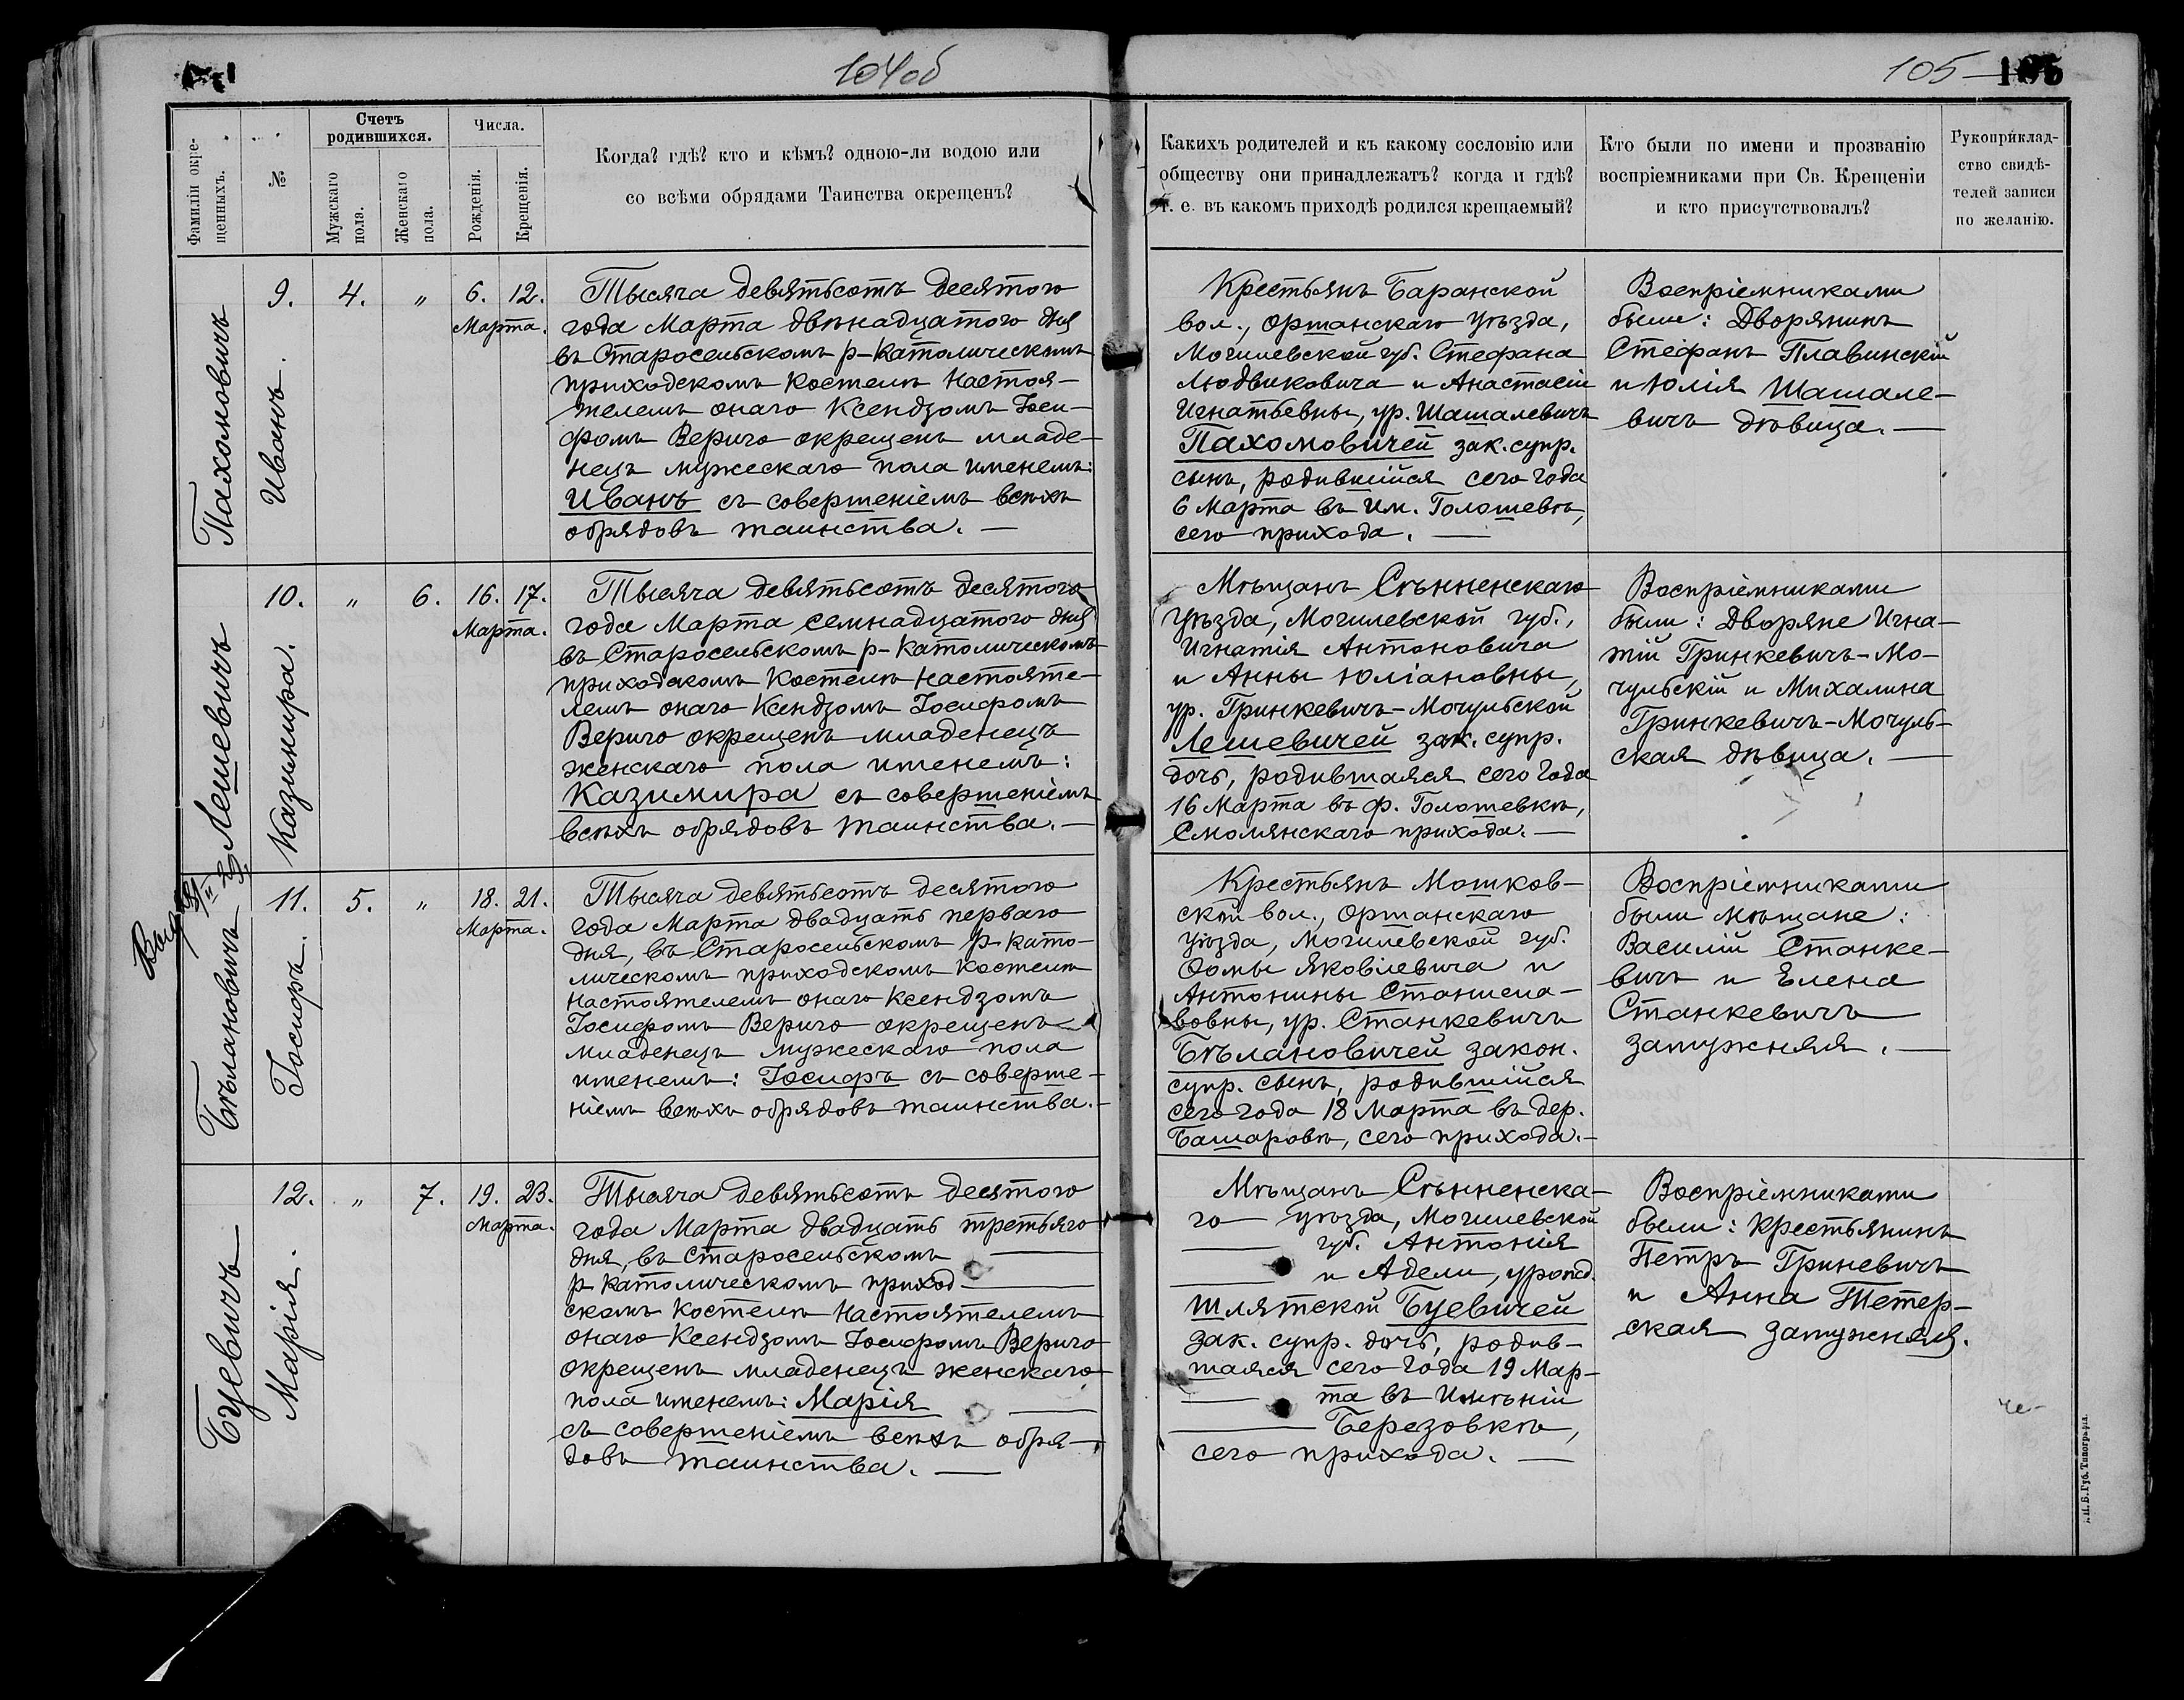 104об
105 105
Фамиліи окре-
щенныхъ.
№
Счетъ
родившихся.
Мужскаго
пола.
Женскаго
пола.
Числа.
Рожденія.
Крещенія.
Когда? гдѣ? кто и кѣмъ? одною-ли водою или
со всѣми обрядами Таинства окрещенъ?
Какихъ родителей и къ какому сословію или
обществу они принадлежатъ? когда и гдѣ?
т. е. въ какомъ приходѣ родился крещаемый?
Кто были по имени и прозванію
воспріемниками при Св. Крещеніи
и кто присутствовалъ?
Рукоприклад-
ство свидѣ-
телей записи
по желанію.
Пахомовичъ
Иванъ.
9. 4. „ 6. 12.
Марта.
Тысяча девятьсотъ десятого
года Марта двѣнадцатого дня
въ Старосельскомъ р-католическомъ
приходскомъ костелѣ Настоя-
телемъ онаго Ксендзомъ Іоси-
фомъ Вериго окрещенъ младе-
нецъ мужескаго пола именемъ:
Иванъ съ совершеніемъ всѣхъ
обрядовъ таинства. —
Крестьянъ Баранской
вол., Оршанскаго уѣзда,
Могилевской губ. Стефана
Людвиковича и Анастасіи
Игнатьевны, ур. Шашалевичъ
Пахомовичей зак. супр.
сынъ, родившійся сего года
6 Марта въ им. Голошевѣ,
сего прихода. —
Воспріемниками
были: Дворянинъ
Стефанъ Плавинскій
и Юлія Шашале-
вичъ дѣвица. —
Лешевичъ
Казимира.
10. „ 6. 16. 17.
Марта.
Тысяча девятьсотъ десятого
года Марта семнадцатого дня
въ Старосельскомъ р-католическомъ
приходскомъ костелѣ Настояте-
лемъ онаго Ксендзомъ Іосифомъ
Вериго окрещенъ младенецъ
женскаго пола именемъ:
Казимира съ совершеніемъ
всѣхъ обрядовъ таинства. —
Мѣщанъ Сѣнненскаго
уѣзда, Могилевской губ.,
Игнатія Антоновича
и Анны Юліановны,
ур. Гринкевичъ-Мочульской
Лешевичей зак. супр.
дочь, родившаяся сего года
16 Марта въ ф. Голошевкѣ,
Смолянскаго прихода. —
Воспріемниками
были: Дворяне Игна-
тій Гринкевичъ-Мо-
чульскій и Михалина
Гринкевичъ-Мочуль-
ская дѣвица. —
Бѣлановичъ
Іосифъ.
11. 5. „ 18. 21.
Марта.
Тысяча девятьсотъ десятого
года Марта двадцать перваго
дня, въ Старосельскомъ р-като-
лическомъ приходскомъ костелѣ
Настоятелемъ онаго Ксендзомъ
Іосифомъ Вериго окрещенъ
младенецъ мужескаго пола
именемъ: Іосифъ съ соверше-
ніемъ всѣхъ обрядовъ таинства. —
Крестьянъ Мошков-
ской вол., Оршанскаго
уѣзда, Могилевской губ.
Ѳомы Яковлевича и
Антонины Станисла-
вовны, ур. Станкевичъ
Бѣлановичей закон.
супр. сынъ, родившійся
сего года 18 Марта въ дер.
Башаровѣ, сего прихода. —
Воспріемниками
были мѣщане:
Василій Станке-
вичъ и Елена
Станкевичъ
замужняя. —
Буевичъ
Марія.
12. „ 7. 19. 23.
Марта.
Тысяча девятьсотъ десятого
года Марта двадцать третьяго
дня, въ Старосельскомъ —
р-католическомъ приход —
скомъ костелѣ Настоятелемъ
онаго Ксендзомъ Іосифомъ Вериго
окрещенъ младенецъ женскаго
пола именемъ: Марія —
съ совершеніемъ всѣхъ обря-
довъ таинства. —
Мѣщанъ Сѣнненска-
го уѣзда, Могилевской
— губ. Антонія
— и Адели, урожд.
Шлятской Буевичей
зак. супр. дочь, родив-
шаяся сего года 19 Мар-
— та въ имѣніи
— Березовкѣ,
сего прихода. —
Воспріемниками
были: крестьянинъ
Петръ Гриневичъ
и Анна Тетер-
ская замужняя.